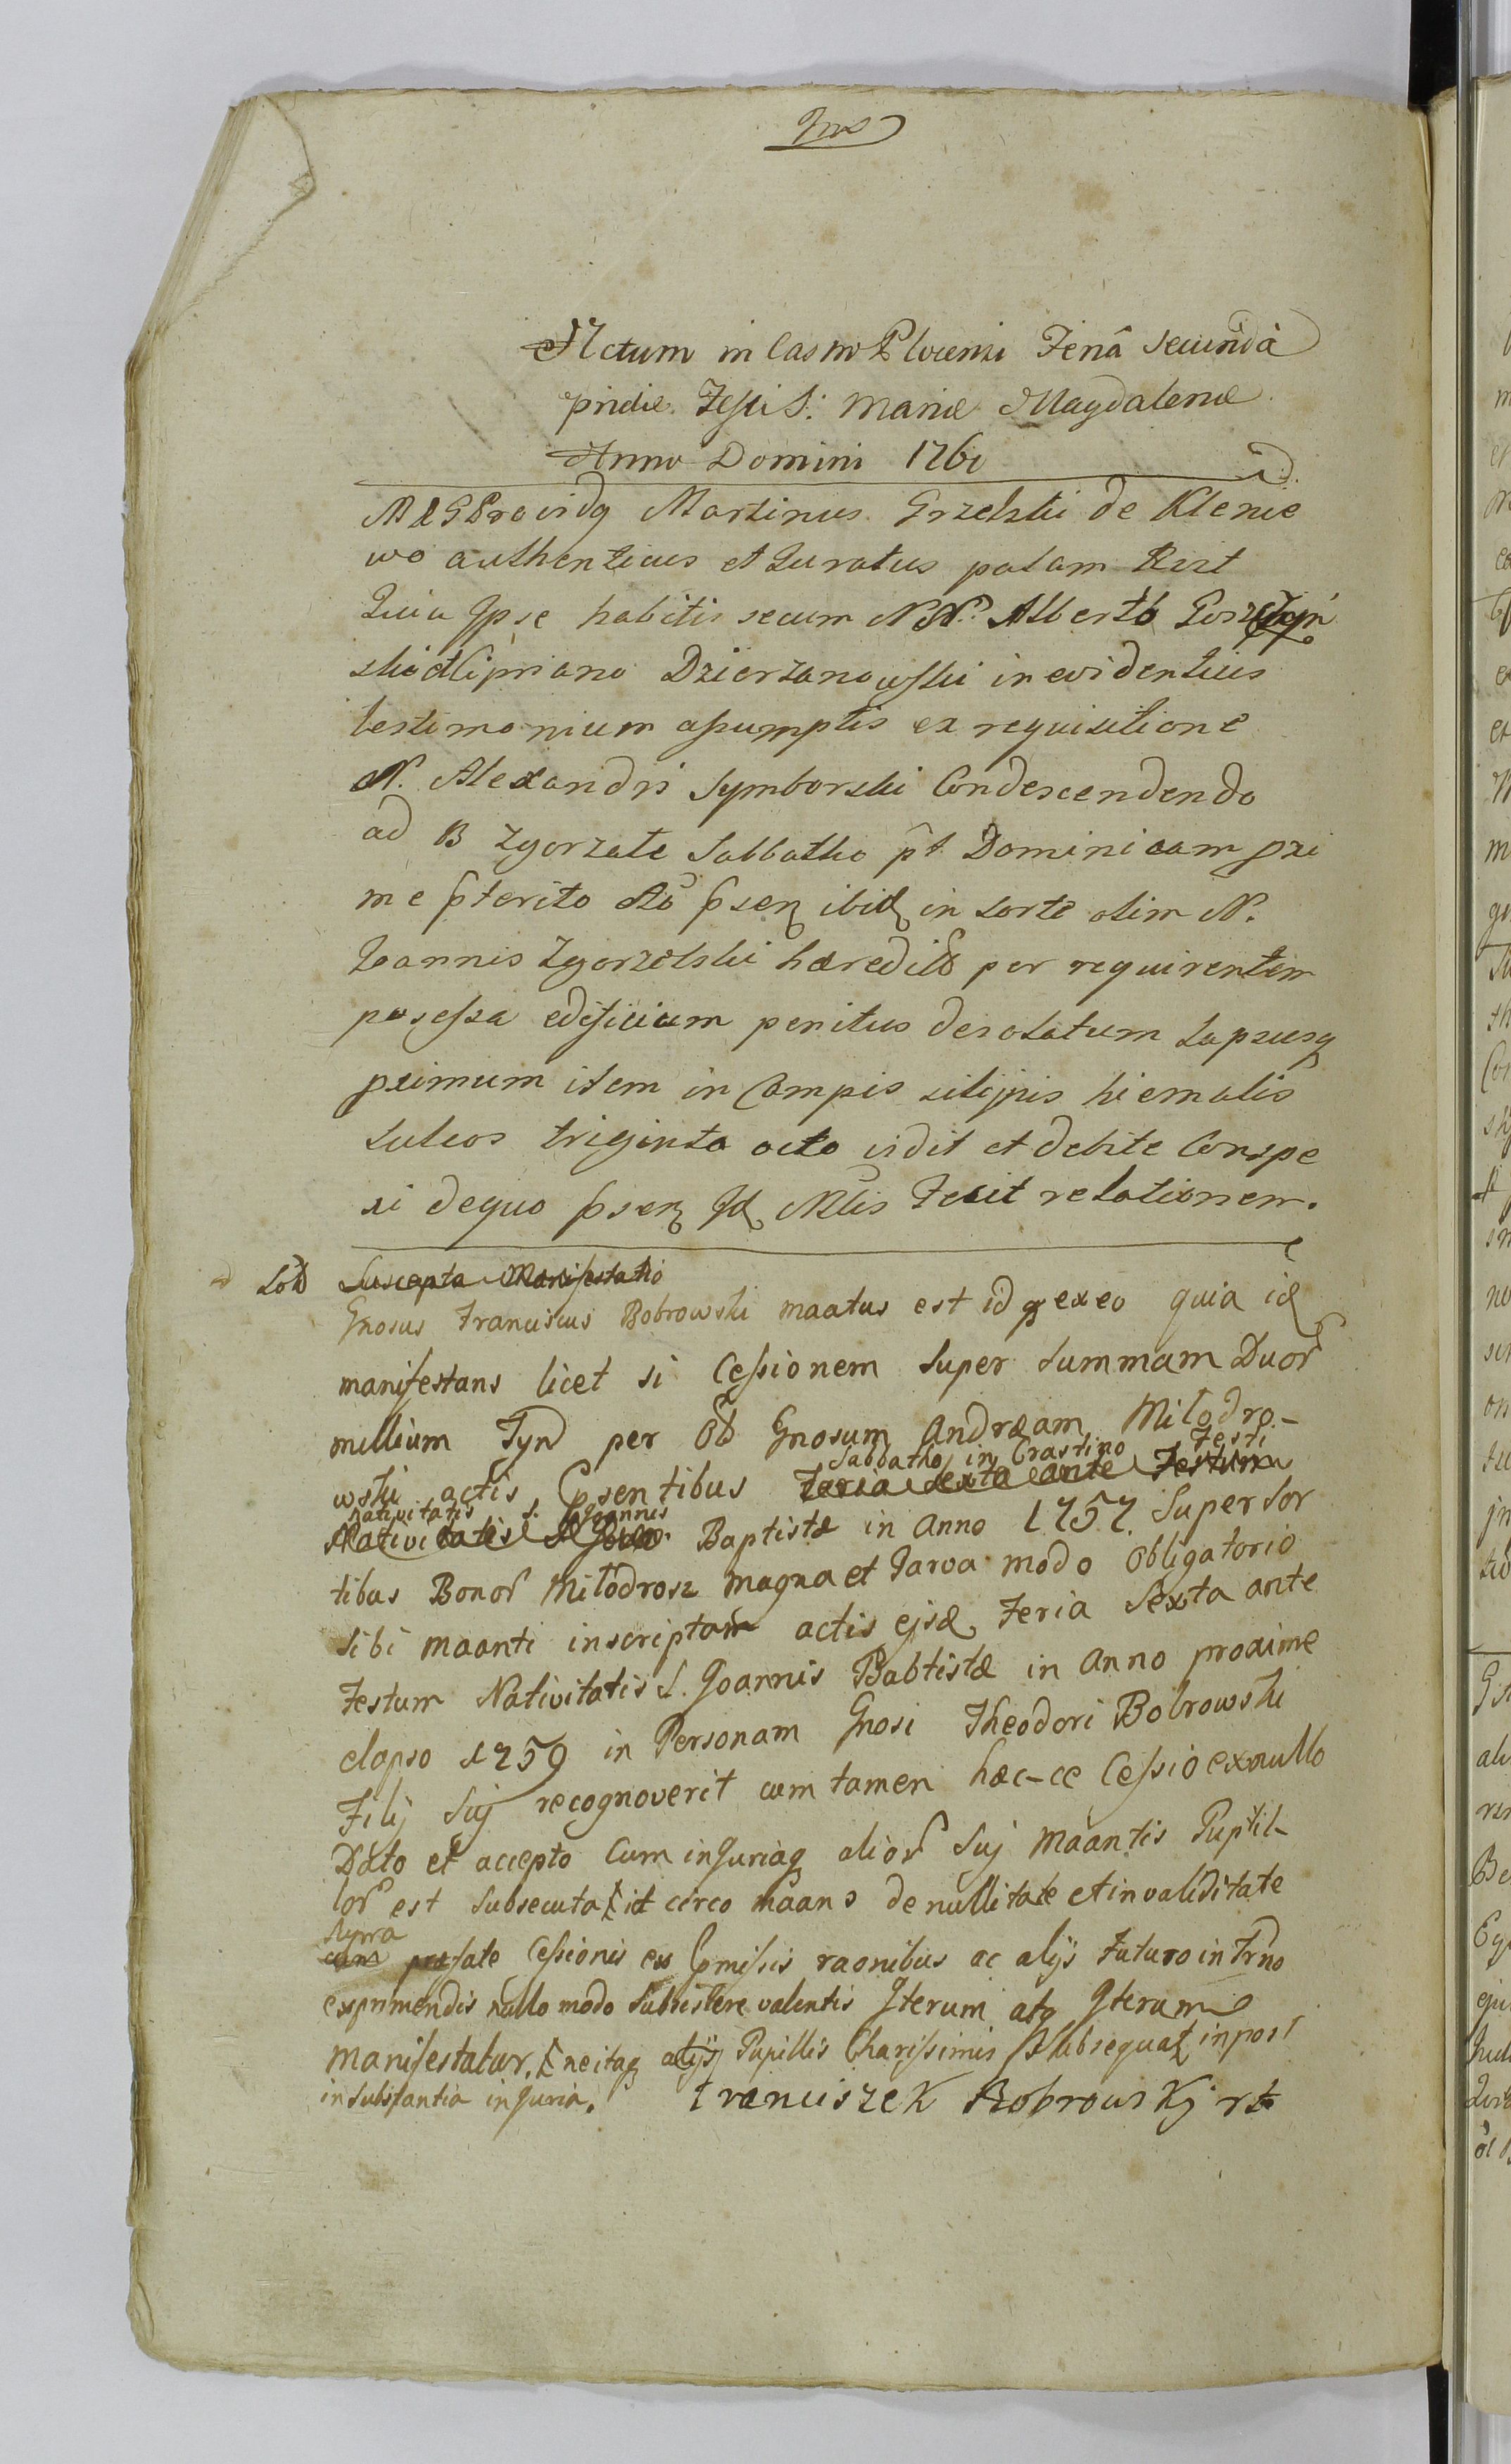 Actum in Castro Plocensi Feria secunda
pridie Festi S: Mariæ Magdalenæ
Anno Domini 1760
Providq Martinus Grzelski de Klenie
wo authenticus et Juratus palam
Quia Ipse habitis secum NN. Alberto
ski et Cipriano Dzierzanowski in evidentius
testimonium assumptis ex requisitione
N. Alexandri Symborski Condescendendo
ad B Zgorzałe Sabbatho pt Dominicam pxi
me pterito Ao psen ibid in sorte olim N.
Ioannis Zgorzelski hæredit per requirentem
posessa edificium penitus desolatum Lapsusq
primum item in Campis silignis hiemalis
sulcos triginta octo vidit et debite Conspe
xi dequo psen Id Mlis Fecit relationem.
Sot Suscepta Manifestatio
Gnosus Franciscus Bobrowski maatus est id p exeo quia id
manifestans licet si Cessionem super summam Duor
millium Fyn per Ob Gnosum Andræam Miłodro-
Sabbatho in Crastino Festi
wski actis Ppsentibus Feria sexta ante Festum
Nativitatis S. Joannis
Nativitatis S Joan Baptistæ in Anno 1757. Super Sor
tibus Bonor Miłodroz magna et Parva modo Obligatorio
Sibi maanti inscriptam actis ejsd Feria Sexta ante
Festum Nativitatis S. Joannis Babtistæ in Anno proxime
elapso 1759 in Personam Gnosi Theodori Bobrowski
Filij Suj recognoverit cum tamen hæc-ce Cessio ex nullo
Dato et accepto Cum injuriaq alior Suj Maantis Pupil-
lor est Subsecuta id circo maans de nullitate et invaliditate
supra
cans præfate Cessionis ex Ppmissis raonibus ac alijs Futuro in Trno
exprimendis nullo modo Subsistere valentis Iterum atq Iterum
Manifestatur, neitaq alijs Pupillis Charissimis Subsequat inpost
in Substantia injuria. Franciszek Bobrowskj